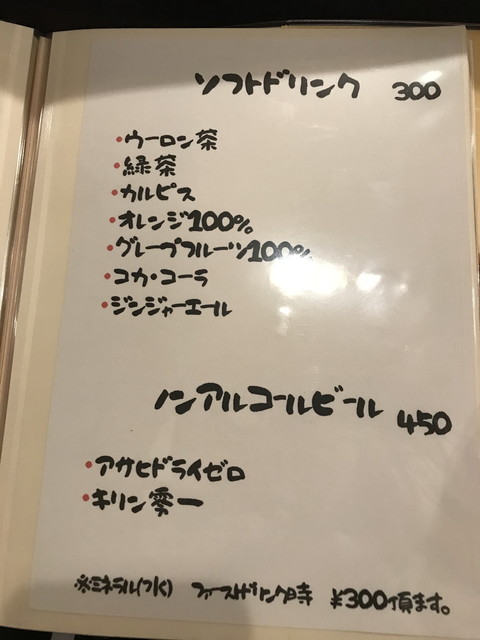 ソフトドリンク 300
・ウーロン茶
・緑茶
・カルピス
・オレンジ100%
・グレープフルーツ100%
・コカ・コーラ
・ジンジャーエール
ノンアルコールビール 450
・アサヒドライゼロ
・キリン零一
※ミネラル(水) ファーストドリンク時 ¥300頂ます。